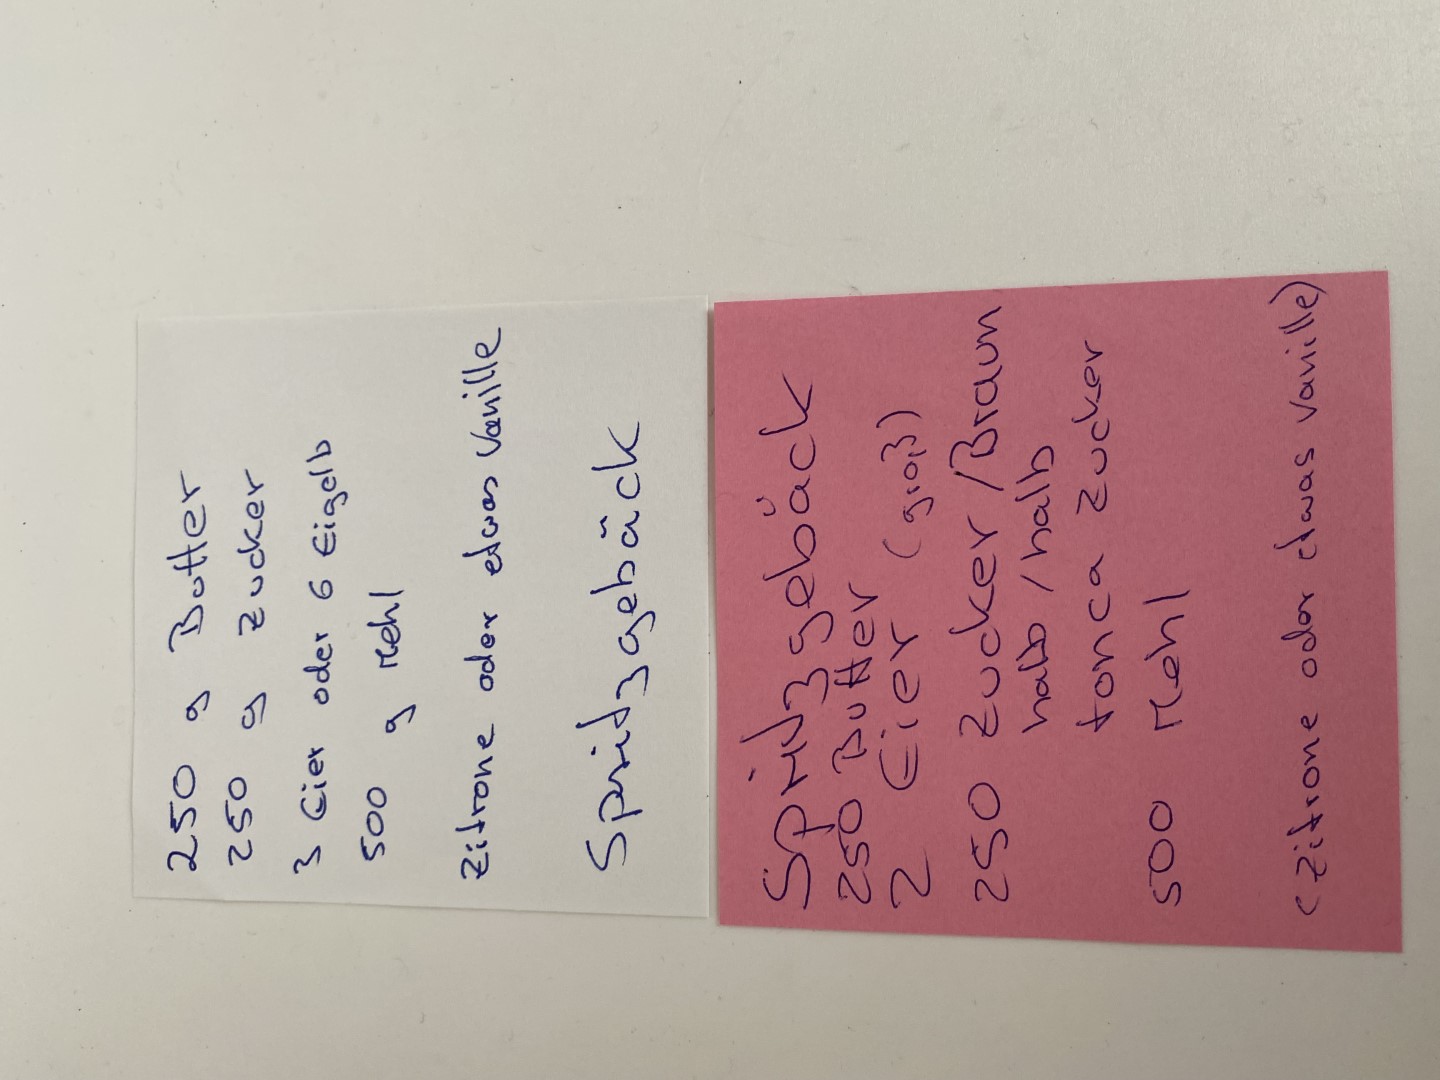 250 g Butter
250 g Zucker
3 Eier oder 6 Eigelb
500 g Mehl
Zitrone oder etwas Vanille
Spritzgebäck
Spritzgebäck
250 Butter
2 Eier (groß)
250 Zucker/Braun
halb/halb
tonca Zucker
500 Mehl
(Zitrone oder etwas Vanille)